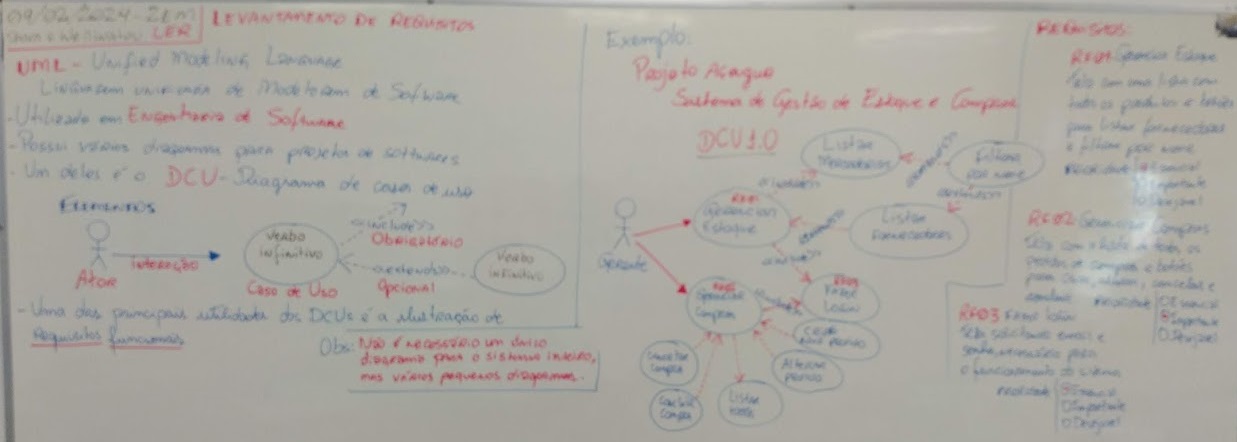 09/02/2024 - 2EM
LER
LEVANTAMENTO DE REQUISITOS
UML - Unified Modeling Language
Linguagem unificada de Modelagem de Software
- Utilizado em Engenharia de Software
- Possui vários diagramas para projetos de softwares
- Um deles é o DCU - Diagrama de casos de uso
ELEMENTOS
Ator
interação
Verbo
infinitivo
Caso de Uso
<<include>>
Obrigatório
<<extend>>
Opcional
Verbo
infinitivo
- Uma das principais utilidades dos DCUs é a ilustração de
Requisitos funcionais
Obs: Não é necessário um único
diagrama para o sistema inteiro,
mas vários pequenos diagramas.
Exemplo:
Projeto Açague
Sistema de Gestão de Estoque e Compras
DCU 1.0
Gerente
RF01
Gerenciar
Estoque
Listar
Mercadorias
Filtrar
por nome
Listar
Fornecedores
RF03
Fazer
Login
RF02
Gerenciar
Compras
Criar
novo pedido
Alterar
pedido
Listar
Cancelar
Compra
Compra
REQUISITOS:
RF01 Gerenciar Estoque
Tela com uma lista com
todos os produtos e botões
para listar fornecedores
e filtrar por nome
Prioridade
Essencial
Importante
Desejável
RF02 Gerenciar Compras
Tela com a lista de todos os
pedidos de compras e botões
para criar, alterar, cancelar e
Prioridade
Essencial
Importante
Desejável
RF03 Fazer login
Tela solicitando email e
senha, necessário para
o funcionamento do sistema
Prioridade
Essencial
Importante
Desejável